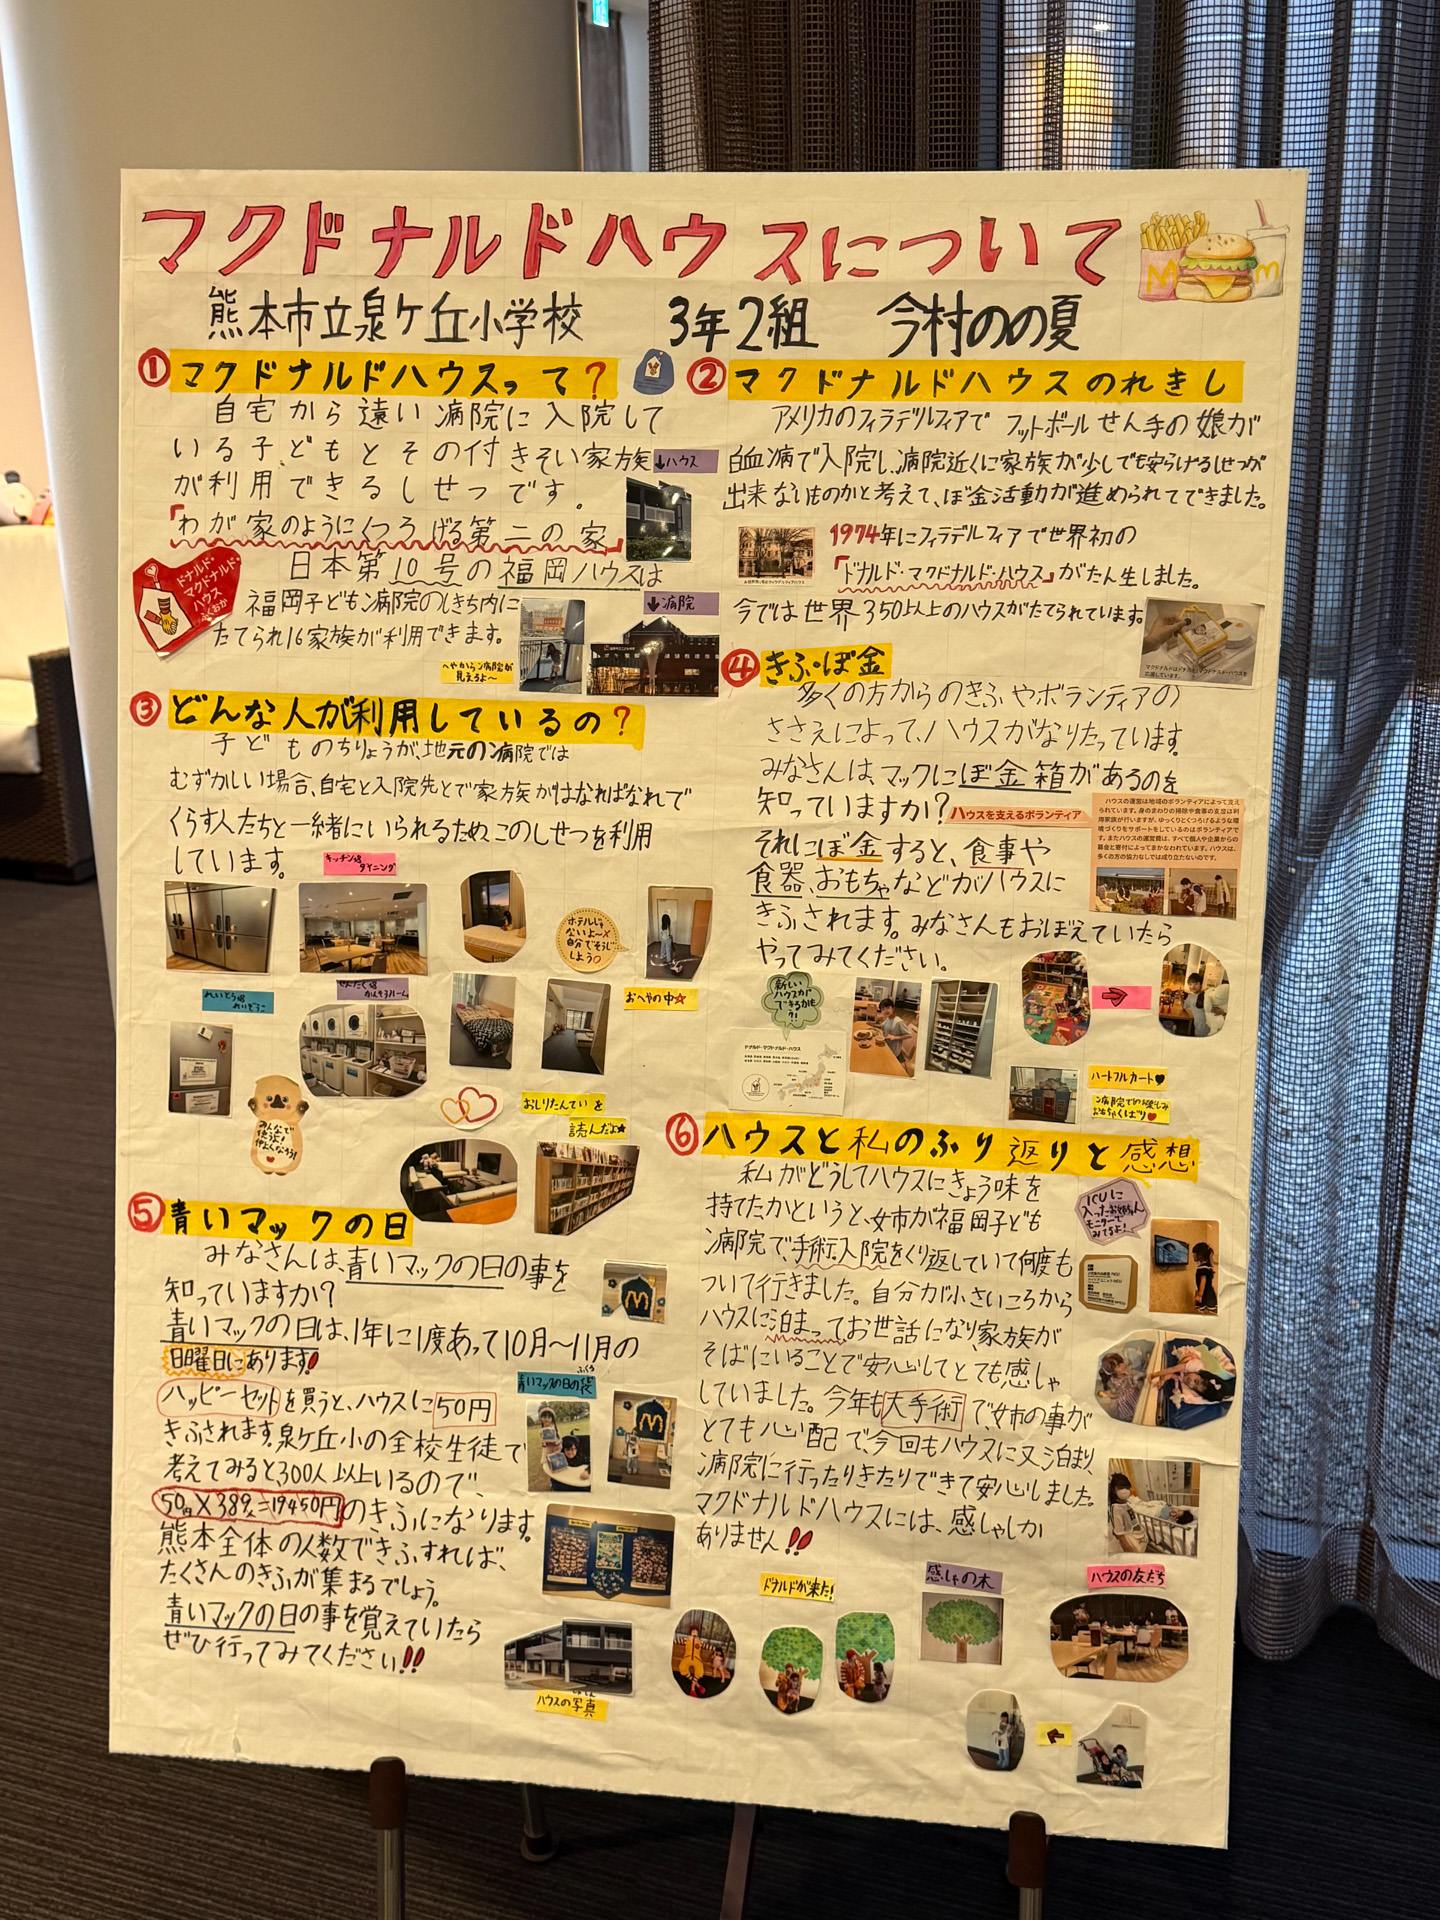 マクドナルドハウスについて
熊本市立泉ケ丘小学校 3年2組 今村のの夏
① マクドナルドハウスって?
自宅から遠い病院に入院して
いる子どもとその付きそい家族
が利用できるしせつです。
「わが家のようにくつろげる第二の家」
日本第10号の福岡ハウスは
福岡子ども病院のしき内に
たてられ16家族が利用できます。
↓ハウス
ドナルド・
マクドナルド・
ハウス
ふくおか
↓病院
へやから病院が
見えるよ〜
② マクドナルドハウスのれきし
アメリカのフィラデルフィアでフットボールせん手の娘が
白血病で入院し、病院近くに家族が少しでも安らげるしせつが
出来ないものかと考えて、ぼ金活動が進められてできました。
1974年にフィラデルフィアで世界初の
「ドナルド・マクドナルド・ハウス」がたん生しました。
今では世界350以上のハウスがたてられています。
③ どんな人が利用しているの?
子どものちりょうが、地元の病院では
むずかしい場合、自宅と入院先とで家族がはなればなれで
くらす人たちと一緒にいられるため、このしせつを利用
しています。
キッチン&
ダイニング
ホテルじゃ
ないよ〜×
自分でそうじ
しよう○
れいとう&
れいぞうこ
せんたく&
かんそうルーム
おへやの中☆
みんなで
使う!
仲よくなろう!
おしりたんていを
読んだよ★
④ きふ・ぼ金
多くの方からのきふやボランティアの
ささえによって、ハウスがなりたっています。
みなさんは、マックにぼ金箱があるのを
知っていますか?
それにぼ金すると、食事や
食器、おもちゃなどがハウスに
きふされます。みなさんもおぼえていたら
やってみてください。
ハウスを支えるボランティア
ハウスの運営は地域のボランティアによって支え
られています。身のまわりの掃除や食事の支度は利
用家族が行いますが、ゆっくりとくつろげるような環
境づくりをサポートをしているのはボランティアで
す。またハウスの運営費は、すべて個人や企業からの
募金と寄付によってまかなわれています。ハウスは、
多くの方の協力なしでは成り立たないのです。
新しい
ハウスが
できるかも
?!
ドナルド・マクドナルド・ハウス
ハートフルカート♥
病院での楽しみ
おもちゃくばり♥
⑤ 青いマックの日
みなさんは、青いマックの日の事を
知っていますか?
青いマックの日は、1年に1度あって10月〜11月の
日曜日にあります!
ハッピーセットを買うと、ハウスに50円
きふされます。泉ケ丘小の全校生徒で
考えてみると300人以上いるので、
50円×389人=19450円のきふになります。
熊本全体の人数できふすれば、
たくさんのきふが集まるでしょう。
青いマックの日の事を覚えていたら
ぜひ行ってみてください!!
青いマックの日の袋
ハウスの写真
⑥ ハウスと私のふり返りと感想
私がどうしてハウスにきょう味を
持てたかというと、妹が福岡子ども
病院で、手術、入院をくり返していて何度も
ついて行きました。自分が小さいころから
ハウスに泊まってお世話になり、家族が
そばにいることで安心してとても感しゃ
していました。今年も大手術で、妹の事が
とても心配で、今回もハウスに又泊まり、
病院に行ったりきたりできて安心しました。
マクドナルドハウスには、感しゃしか
ありません!!
ICUに
入った
モニターで
みてるよ!
ドナルドが来た!
感しゃの木
ハウスの友だち